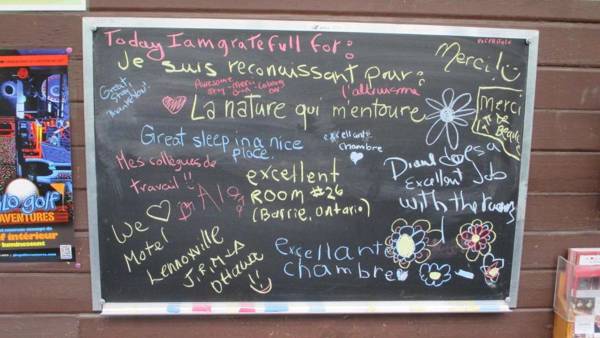 Today I am gratefull for:
Je suis reconaissant pour:
Merci!
Great
stay
Awesome
stay - Merci
l'altruisme
La nature qui m'entoure
Merci
Great sleep in a nice
place.
excellante
chambre
Mes collègues de
travail!!
excellent
ROOM #26
(Barrie, Ontario)
Diane does a
Excellent Job
with the rooms
We
Motel
Lennoxville
J.R.M-A
Ottawa
excellante
chambre
lo golf
AVENTURES
f intérieur
luminescent